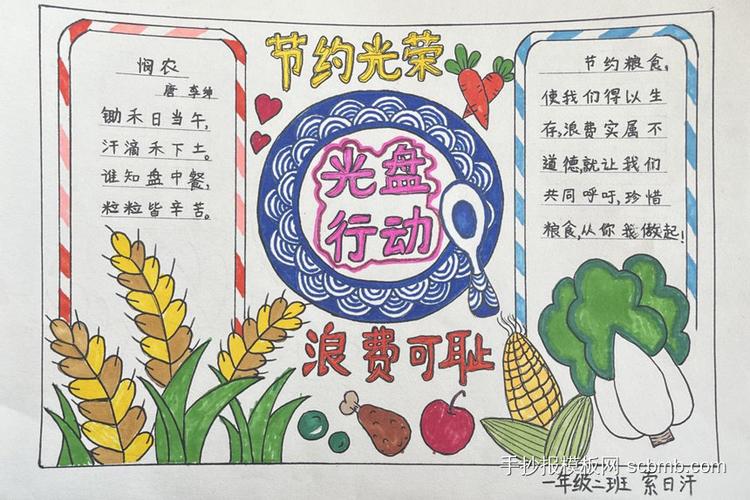 节约光荣
悯农
唐 李绅
锄禾日当午,
汗滴禾下土。
谁知盘中餐,
粒粒皆辛苦。
光盘
行动
浪费可耻
节约粮食,
使我们得以生
存,浪费实属不
道德,就让我们
共同呼吁,珍惜
粮食,从你我做起!
手抄报模板网 - scbmb.com
一年级二班 索日汗